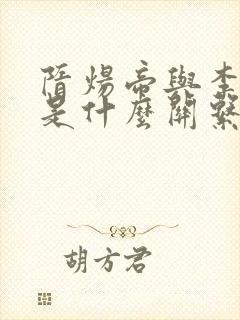 隋煬帝與李
是什麼關繫
胡方君